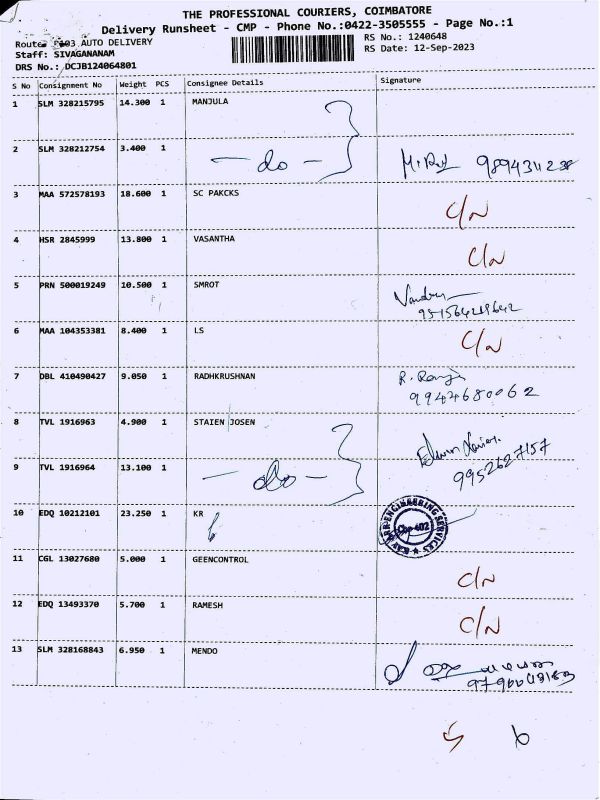 THE PROFESSIONAL COURIERS, COIMBATORE
Delivery Runsheet - CMP - Phone No.:0422-3505555 - Page No.:1
Route: P103 AUTO DELIVERY
RS No.: 1240648
Staff: SIVAGANANAM
RS Date: 12-Sep-2023
DRS No.: DCJB124064801
S No Consignment No Weight PCS Consignee Details Signature
1 SLM 328215795 14.300 1 MANJULA
2 SLM 328212754 3.400 1 - do -
3 MAA 572578193 18.600 1 SC PAKCKS C/N
4 HSR 2845999 13.800 1 VASANTHA C/N
5 PRN 500019249 10.500 1 SMROT
6 MAA 104353381 8.400 1 LS C/N
7 DBL 410490427 9.050 1 RADHKRUSHNAN
9944680062
8 TVL 1916963 4.900 1 STAIEN JOSEN
9 TVL 1916964 13.100 1 - do - 9952627157
10 EDQ 10212101 23.250 1 KR
11 CGL 13027680 5.000 1 GEENCONTROL C/N
12 EDQ 13493370 5.700 1 RAMESH C/N
13 SLM 328168843 6.950 1 MENDO